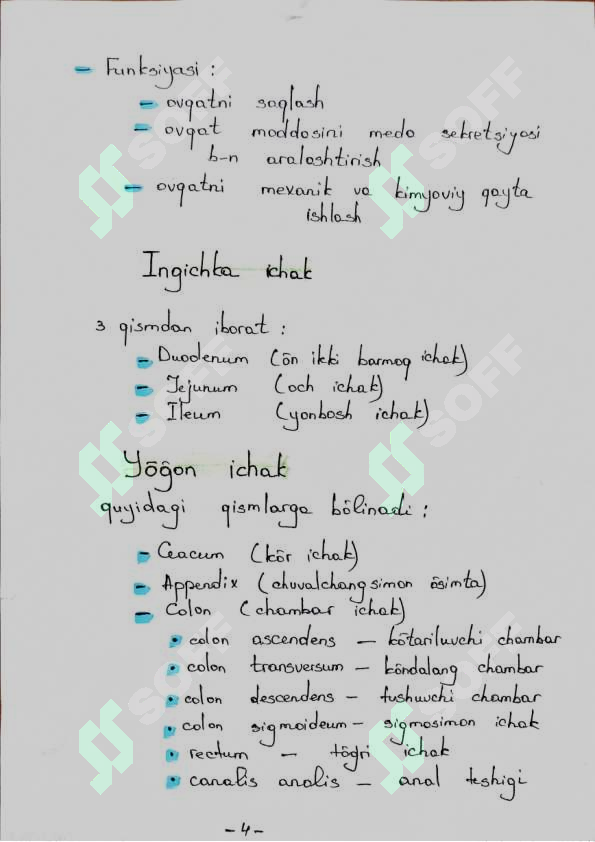 - Funksiyasi :
- ovqatni saqlash
- ovqat moddasini meda sekretsiyasi
b-n aralashtirish
- ovqatni mexanik va kimyoviy qayta
ishlash
Ingichka ichak
3 qismdan iborat :
- Duodenum (ōn ikki barmoq ichak)
- Jejunum (och ichak)
- Ileum (yonbosh ichak)
Yōĝon ichak
quyidagi qismlarga bōlinadi :
- Ceacum (kōr ichak)
- Appendix (chuvalchangsimon ōsimta)
- Colon (chambar ichak)
• colon ascendens – kōtariluvchi chambar
• colon transversum – kōndalang chambar
• colon descendens – tushuvchi chambar
• colon sigmoideum – sigmasimon ichak
• rectum – tōĝri ichak
• canalis analis – anal teshigi
-4-
SOFF
SOFF
SOFF
SOFF
SOFF
SOFF